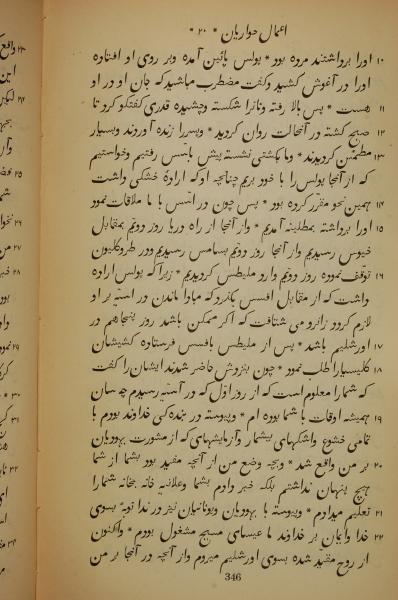 اعمال حواریان * ۲۰ *
۱۰ اورا برداشتند مرده بود * پولس پائین آمده وبر روی او افتاده
اورا در آغوش کشید وگفت مضطرب مباشید که جان او در او
۱۱ هست * پس بالا رفته ونانرا شکسته وچشیده قدری گفتگو کرد تا
۱۲ صبح گشته در آنحالت روان گردید * وپسررا زنده آوردند وبسیار
۱۳ مطمئن گردیدند * وما بکشتی نشسته پیش باسّس رفتیم وخواستیم
که از آنجا پولس را با خود بریم چنانچه او که ارادهٔ خشکی داشت
۱۴ همین نحو مقرّر کرده بود * پس چون در اسّس با ما ملاقات نمود
۱۵ اورا برداشته بمطلینه آمدیم * واز آنجا از راه دریا روز دویم بمقابل
خیوس رسیدیم واز آنجا روز دویم بسامس رسیدیم ودر طروکلیون
۱۶ توقف نموده روز دویم وارد ملیطس گردیدیم * زیرا که پولس اراده
داشت که از مقابل افسس بگذرد که مبادا ماندن در آسیه بر او
لازم گردد زانرو می شتافت که اگر ممکن باشد روز پنجاهم در
۱۷ اورشلیم باشد * پس از ملیطس بافسس فرستاده کشیشان
۱۸ کلیسیارا طلب نمود * چون بنزدش حاضر شدند ایشان‌را گفت
که شمارا معلوم است که از روز اوّل که در آسیه رسیدم چه سان
۱۹ همیشه اوقات با شما بوده ام * وپیوسته در بندگی خداوند بودم با
تمامی خشوع واشکهای بیشمار وآزمایشهای که از مشورت یهودیان
۲۰ بر من واقع شد * وبچه وضع من از آنچه مفید بود بشما از شما
هیچ پنهان نداشتم بلکه خبر دادم بشما وعلانیه خانه بخانه شمارا
۲۱ تعلیم میدادم * وپیوسته با یهودیان ویونانیان نیز در ندا توبه بسوی
۲۲ خدا وایمان بر خداوند ما عیسای مسیح مشغول بودم * واکنون
از روح مقیّد شده بسوی اورشلیم میروم واز آنچه در آنجا بر من
346